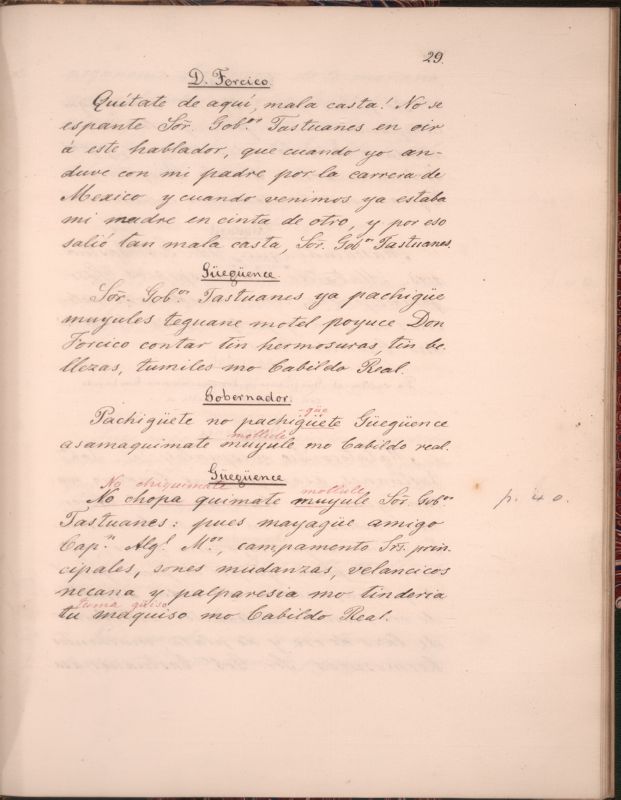 29.
D. Forcico.
Quítate de aquí, mala casta! No se
espante Sor̃. Gob.ᵒʳ Tastuanes en oir
á este hablador, que cuando yo an-
duve con mi padre por la carrera de
Mexico y cuando venimos ya estaba
mi madre en cinta de otro, y por eso
salió tan mala casta, Sor. Gobᵒʳ Tastuanes.
Güegüence.
Sor̃. Gob.ᵒʳ Tastuanes ya pachigüe
muyules teguane motel poyuce Don
Forcico contar tin hermosuras, tin be-
llezas, tumiles mo Cabildo Real.
Gobernador.
-güe
Pachigüete no pachigüete Güegüence
mollule
asamaquimate muyule mo Cabildo real.
Güegüence
No chiquimate mollule
No chopa quimate muyule Sor̃. Gob.ᵒʳ
p. 40.
Tastuanes: pues mayague amigo
Cap.ⁿ Alg.ˡ M.ᵒʳ, campamento Srs. prin-
cipales, sones mudanzas, velancicos
necana y palparesia mo tinderia
tuma güiso
tu maquiso mo Cabildo Real.